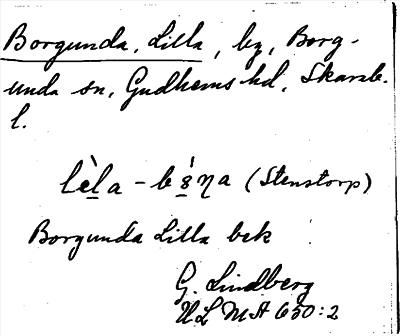 Borgunda, Lilla, by, Borg-
unda sn, Gudhems hd, Skarab.
l.
lèḻa - bś̱ŋa (Stenstorp)
Borgunda Lilla bek
G. Lindberg
ULMA 650:2